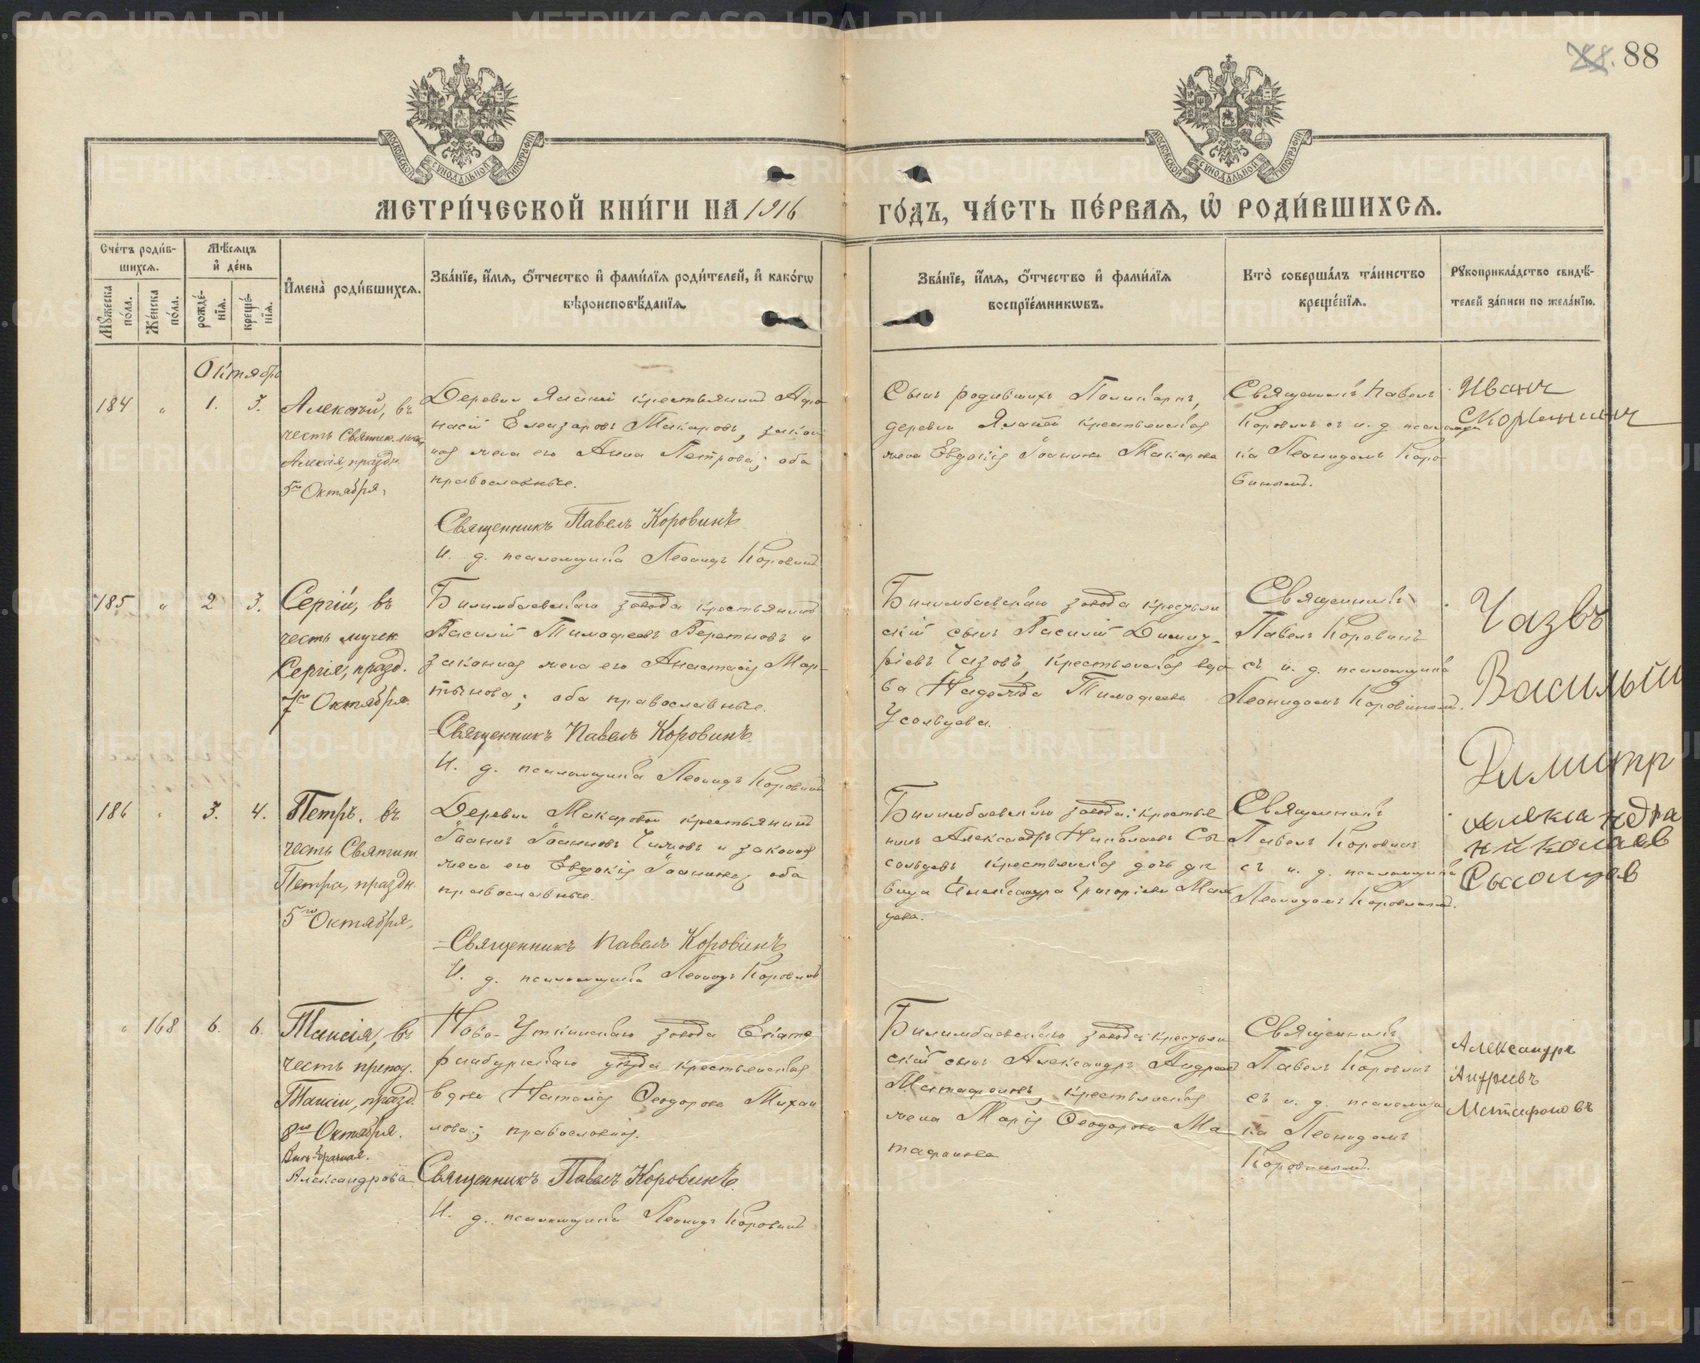 88
МЕТРИ́ЧЕСКОЙ КНИ́ГИ НА 1916 ГО́ДЪ, ЧА́СТЬ ПЕ́РВАЯ, Ѡ҆ РОДИ́ВШИХСЯ.
Сче́тъ роди́в-
шихся.
Мѣ́сяцъ
и҆ де́нь
Мꙋ́жеска
по́ла.
Же́нска
по́ла.
рожде́-
нїя.
креще́-
нїя.
И҆мена̀ роди́вшихся.
Зва́нїе, и҆́мя, ѻ҆́тчество и҆ фами́лїя роди́телей, и҆ како́гѡ
вѣроисповѣ́данїя.
Зва́нїе, и҆́мя, ѻ҆́тчество и҆ фами́лїя
воспрїе́мникѡвъ.
Кто̀ соверша́лъ та́инство
креще́нїя.
Рꙋкоприкла́дство свидѣ́-
телей за́писи по жела́нїю.
Октябрь
184 " 1. 3.
Алексій, въ
честь Святит.
Алексія, праздн.
5го Октября.
крестьянинъ
Елеазаровъ Макаровъ, закон
ная жена его Анна Петрова; оба
православные.
Священникъ Павелъ Коровинъ
И. д. псаломщика Леонидъ Коровинъ
Сынъ родившихъ
деревни крестьянская
жена Евдокія Іоаннова Макарова
Священникъ Павелъ
Коровинъ съ и. д. псаломщи
ка Леонидомъ Коро
винымъ.
Иванъ
185 " 2 3.
Сергій, въ
честь мучен.
Сергія, празд.
7го Октября.
Билимбаевскаго завода крестьянинъ
Василій Тимофеевъ и
законная жена его Анастасія Мар-
тынова; оба православные.
Священникъ Павелъ Коровинъ
И. д. псаломщика Леонидъ Коровинъ
Билимбаевскаго завода крестьян
скій сынъ Василій Димит-
ріевъ Чазовъ, крестьянская вдо
ва Надежда Тимофеева
Усольцева.
Священникъ
Павелъ Коровинъ
съ и. д. псаломщика
Леонидомъ Коровинымъ.
Чазвъ
Василый
Димитр
186 " 3. 4.
Петръ, въ
честь Святит
Петра, праздн.
5го Октября.
Деревни Макаровой крестьянинъ
Іоаннъ Іоанновъ и законная
жена его Евдокія Іоаннова; оба
православные.
Священникъ Павелъ Коровинъ
И. д. псаломщика Леонидъ Коровинъ
Билимбаевскаго завода: крестья
нинъ Александръ Николаевъ Сы
сольцевъ крестьянская дочь дѣ
вица Александра Григоріева
Священникъ
Павелъ Коровинъ
съ и. д. псаломщика
Леонидомъ Коровинымъ.
николаев
" 168 6. 6.
Таисія, въ
честь препод.
Таисіи, празд.
8го Октября.
Внѣбрачная.
Александрова
Ново-Уткинскаго завода Екате
ринбургскаго уѣзда крестьянская
вдова Наталія Ѳеодорова Михаи
лова; православная.
Священникъ Павелъ Коровинъ
И. д. псаломщика Леонидъ Коровинъ
Билимбаевскаго завода: крестьян
скій сынъ Александръ Андреевъ
Матафоновъ, крестьянская
жена Марія Ѳеодорова Ма
тафонова
Священникъ
Павелъ Коровинъ
съ и. д. псаломщи
ка Леонидомъ
Коровинымъ.
Александръ
Андреевъ
Матафоновъ
METRIKI.GASO-URAL.RU